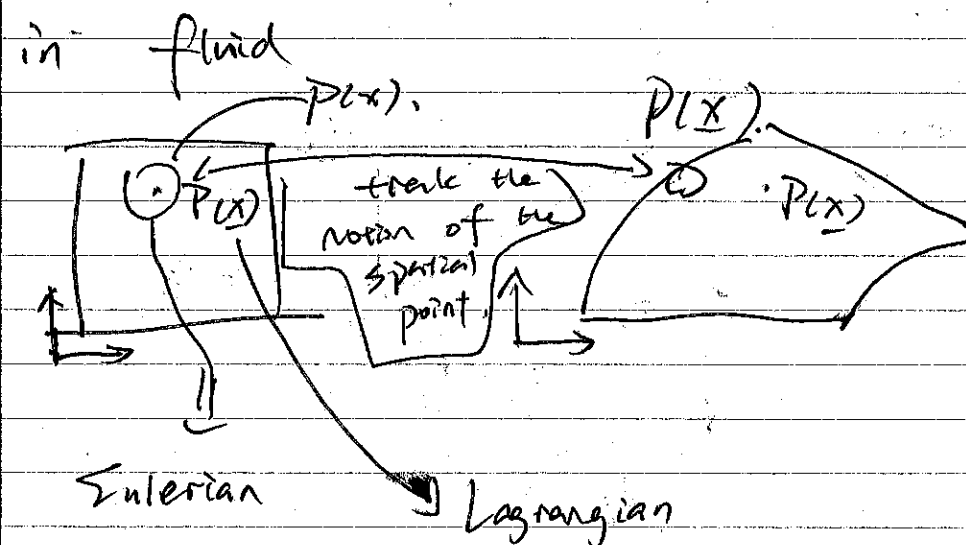 in fluid
P(x).
P(X).
P(X)
track the
motion of the
spartial
point.
P(X)
Eulerian
Lagrangian